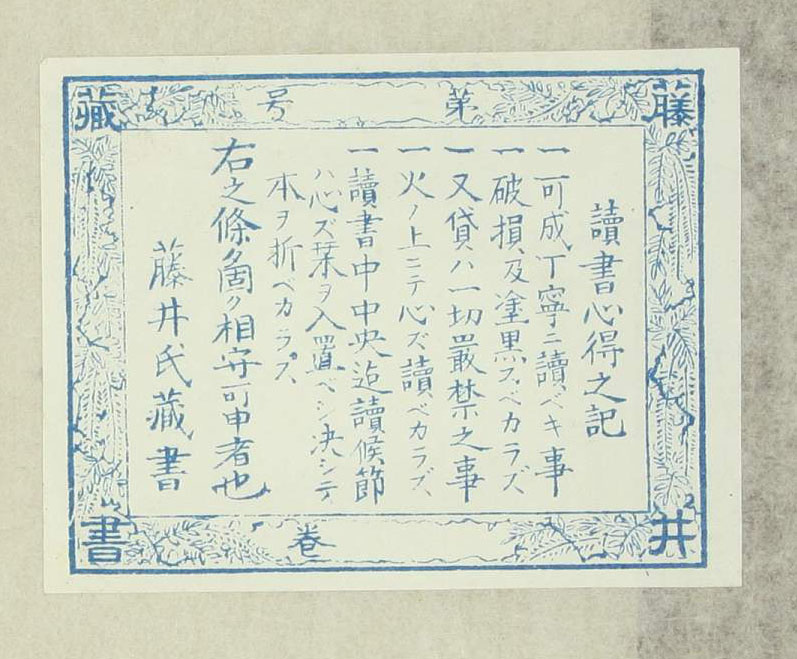 藤井藏書
第 号
巻
讀書心得之記
一可成丁寧ニ讀ベキ事
一破損及塗黒スベカラズ
一又貸ハ一切嚴禁之事
一火ノ上ニテ心ズ讀ベカラズ
一讀書中中央迄讀候節
ハ心ズ栞ヲ入置ベシ決シテ
本ヲ折ベカラズ
右之條箇ク相守可申者也
藤井氏藏書